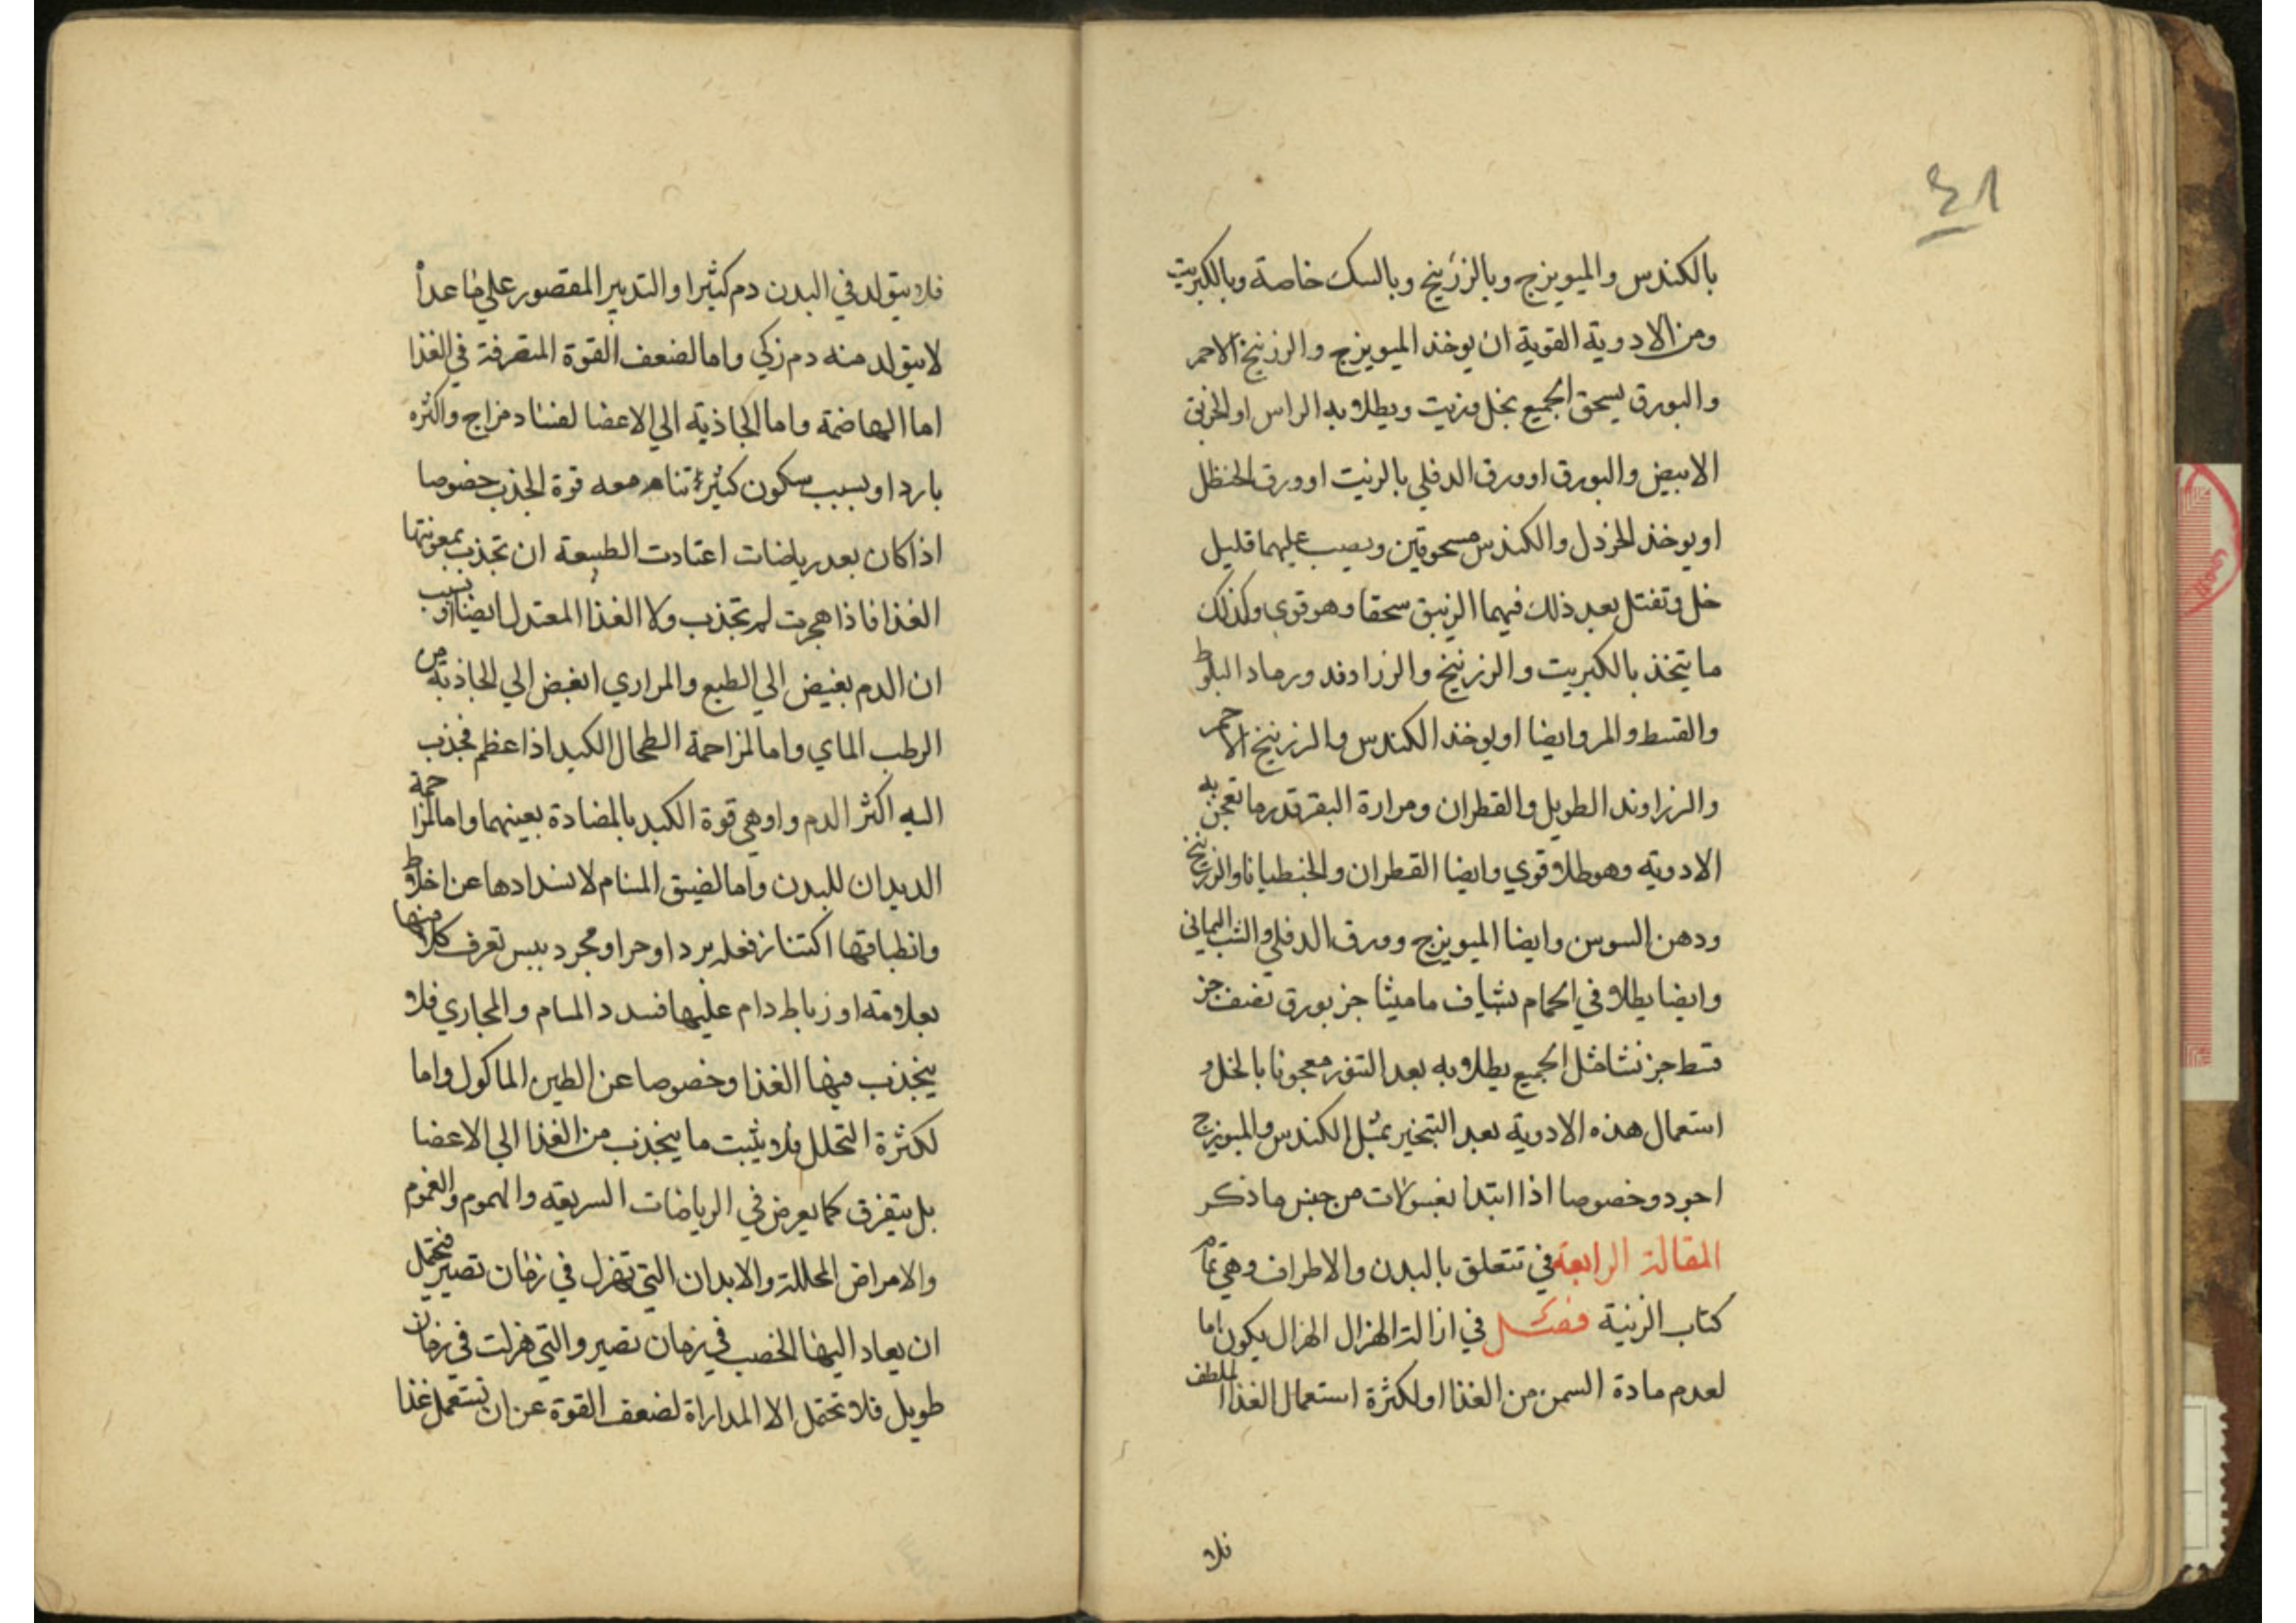 ٤٨
بالكندس والميويزج وبالزرنيخ وبالسك خاصة وبالكبريت
ومن الادوية القوية ان يوخذ الميويزج والزرنيخ الاحمر
والبورق يسحق الجميع بخل وزيت ويطلا به الراس او الخربق
الابيض والبورق او ورق الدفلي بالزيت او ورق الحنظل
او يوخذ الخردل والكندس مسحوقين ويصب عليهما قليل
خل وتفتل بعد ذلك فيهما الزيبق سحقا وهو قوي وكذلك
ما يتخذ بالكبريت والزرنيخ والزراوند ورماد البلوط
والقسط والمر وايضا او يوخذ الكندس والزرنيخ الاحمر
والزراوند الطويل والقطران ومرارة البقر قدر ما تعجن به
الادوية وهو طلا قوي وايضا القطران والجنطيانا والزرنيخ
ودهن السوسن وايضا الميويزج وورق الدفلي والشب اليماني
وايضا يطلا في الحمام بشياف ماميثا جز بورق نصف جز
قسط جز نشا مثل الجميع يطلا به بعد التنور معجونا بالخل و
استعمال هذه الادوية بعد التبخير بمثل الكندس والميويزج
اجود وخصوصا اذا ابتدا بغسولات من جنس ما ذكر
المقالة الرابعة في تتعلق بالبدن والاطراف وهي تمام
كتاب الزينة فصل في ازالة الهزال الهزال يكون اما
لعدم مادة السمن من الغذا او لكثرة استعمال الغذا الملطف
فلا
فلا يتولد في البدن دم كثيرا والتدبير المقصور علي ما عدا
لا يتولد منه دم زكي واما لضعف القوة المتصرفة في الغذا
اما الهاضمة واما الجاذبة الي الاعضا لفساد مزاج واكثره
باردا وبسبب سكون كثير تنام معه قوة الجذب خصوصا
اذا كان بعد رياضات اعتادت الطبيعة ان تجذب بمعونتها
الغذا فاذا هجرت لم تجذب ولا الغذا المعتدل ايضا او بسبب
ان الدم بغيض الي الطبع والمراري ابغض الي الجاذبة من
الرطب الماي واما لمزاحمة الطحال الكبد اذا عظم فجذب
اليه اكثر الدم واوهي قوة الكبد بالمضادة بعينهما واما لمزاحمة
الديدان للبدن واما لضيق المسام لانسدادها عن اخلاط
وانطباقها اكتناز فعله برد او حر او مجرد يبس تعرف كلا منها
بعلامته او رباط دام عليها فسدد المسام والمجاري فلا
ينجذب فيها الغذا وخصوصا عن الطين الماكول واما
لكثرة التحلل فلا يثبت ما ينجذب من الغذا الي الاعضا
بل يتفرق كما يعرض في الرياضات السريعة والهموم والغموم
والامراض المحللة والابدان التي تهزل في زمان تصير فتحتمل
ان يعاد اليها الخصب في زمان تصير والتي هزلت في زمان
طويل فلا تحتمل الا المداراة لضعف القوة عن ان تستعمل غذا